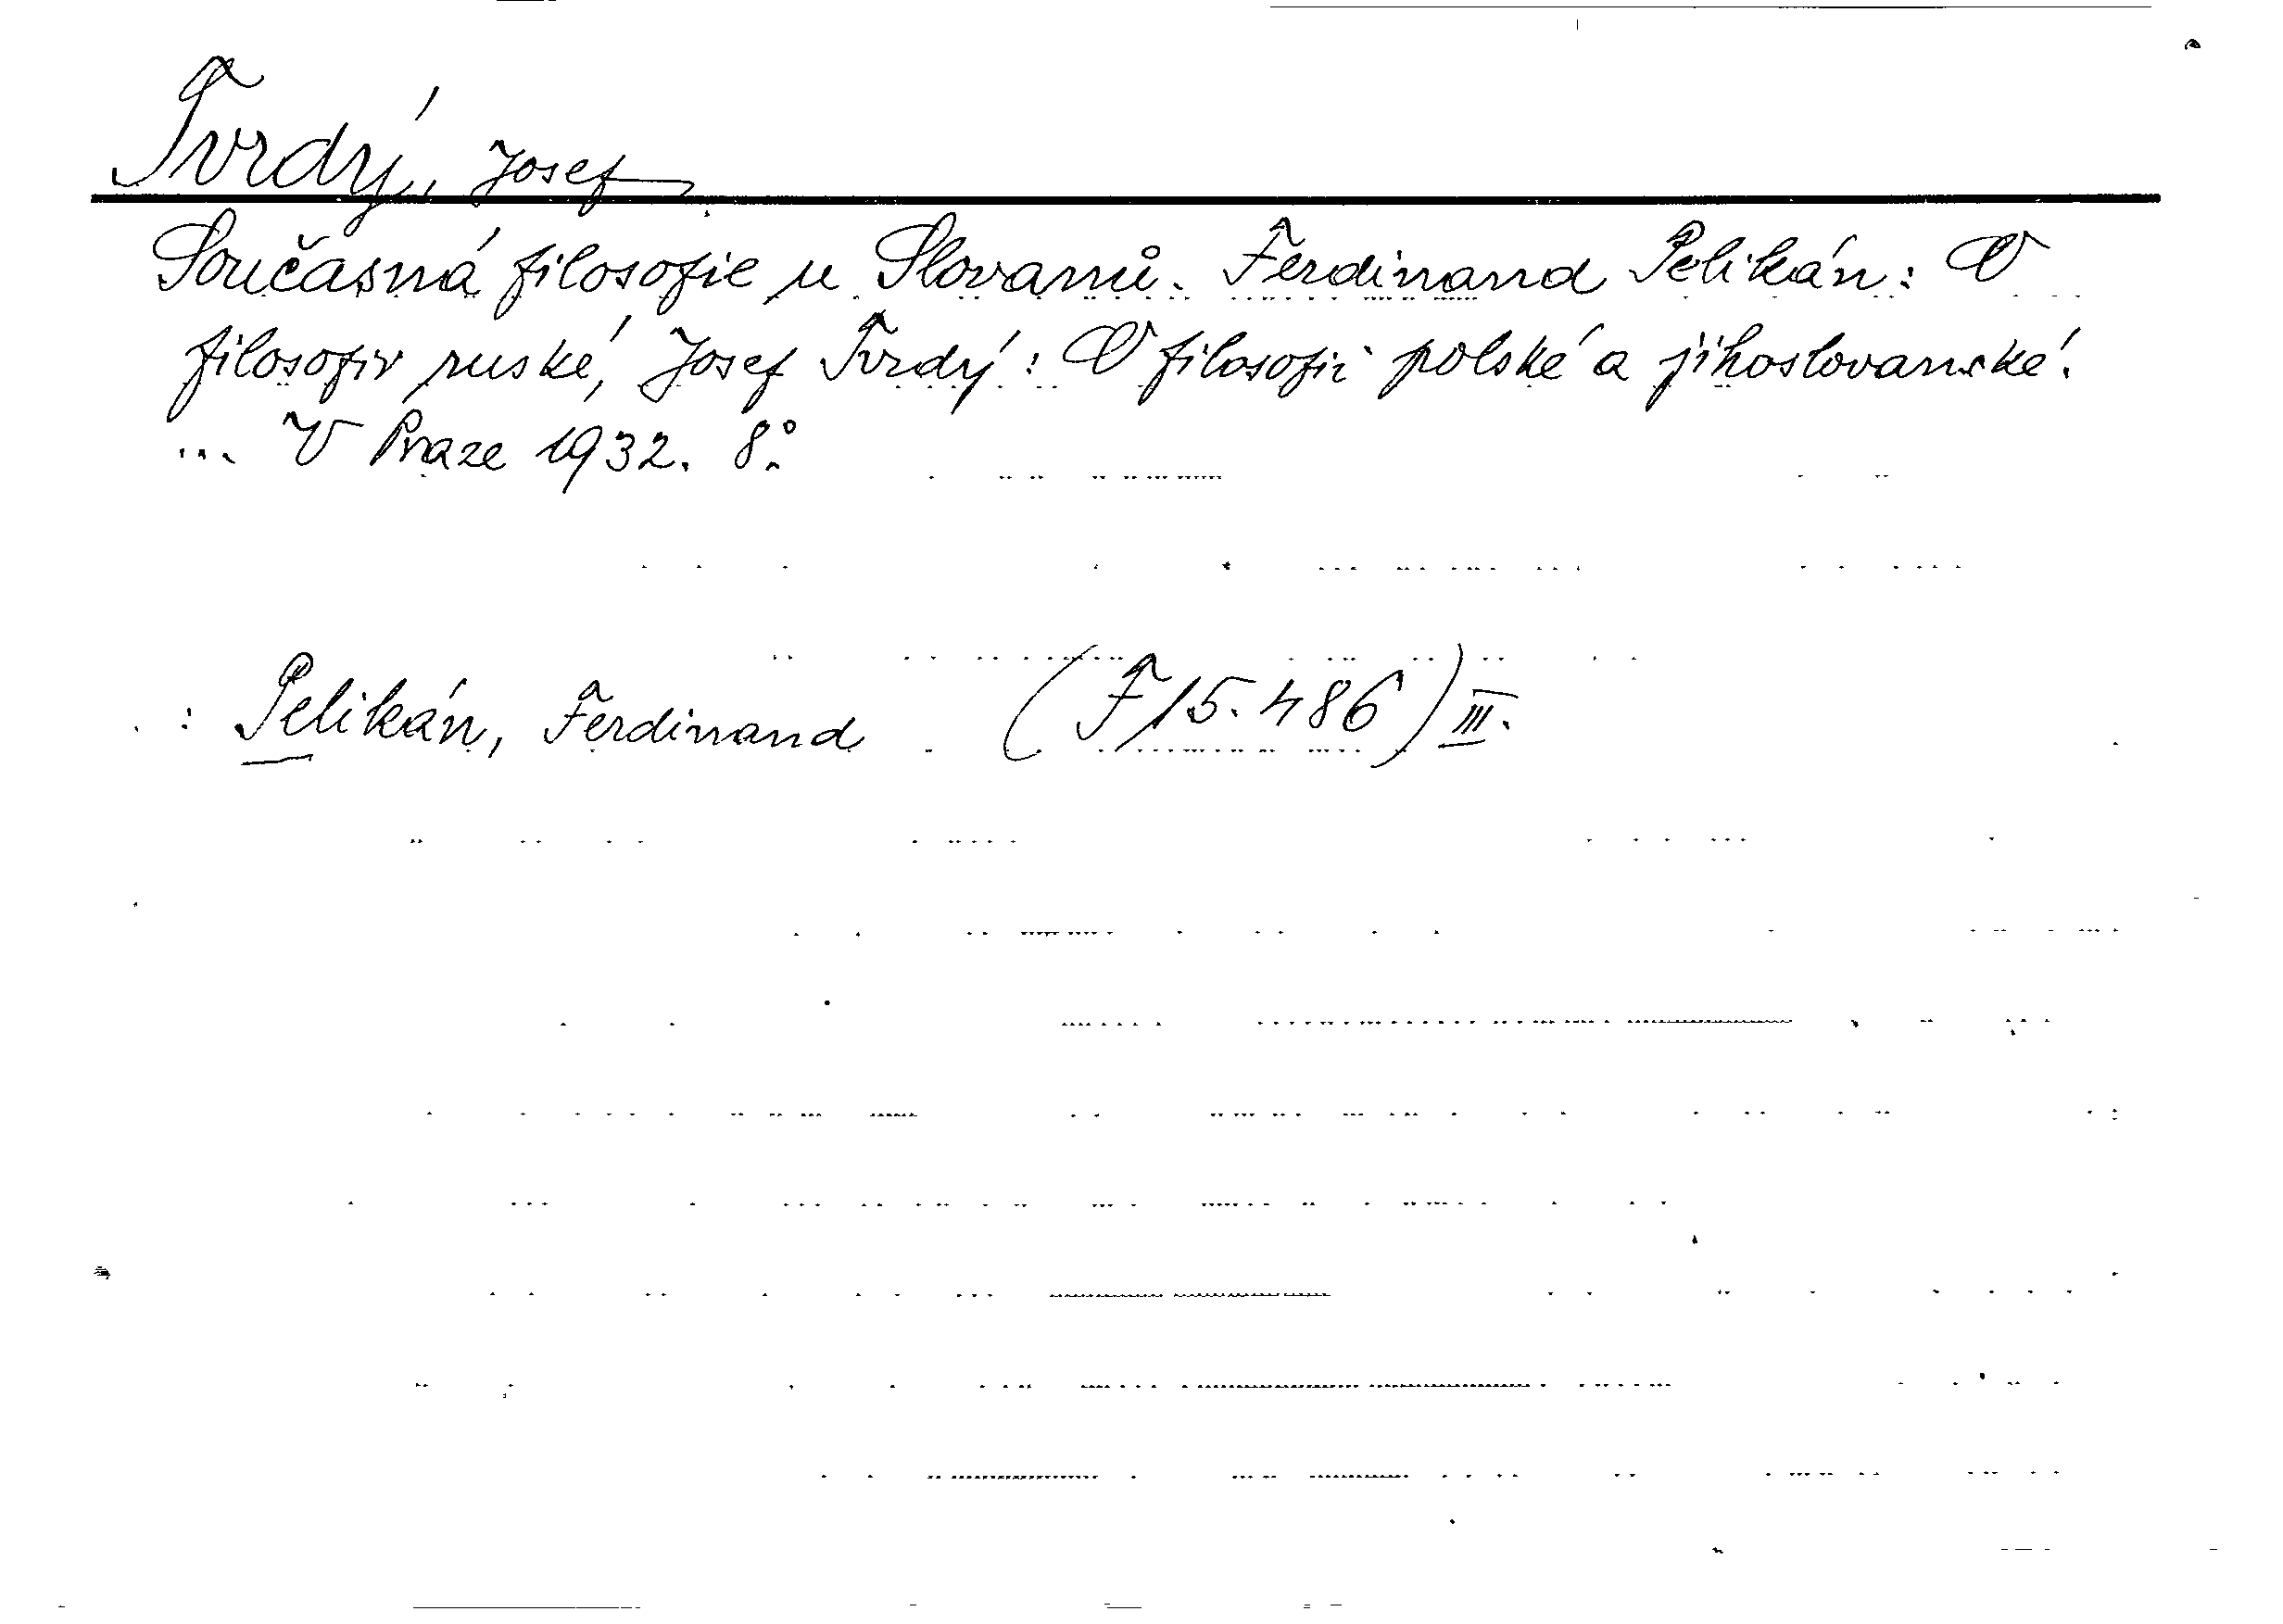 Tvrdý, Josef
Současná filosofie u Slovanů. Ferdinand Pelikán: O
filosofii ruské, Josef Tvrdý: O filosofii polské a jihoslovanské.
... V Praze 1932. 8°.
: Pelikán, Ferdinand (F 15.486) III.